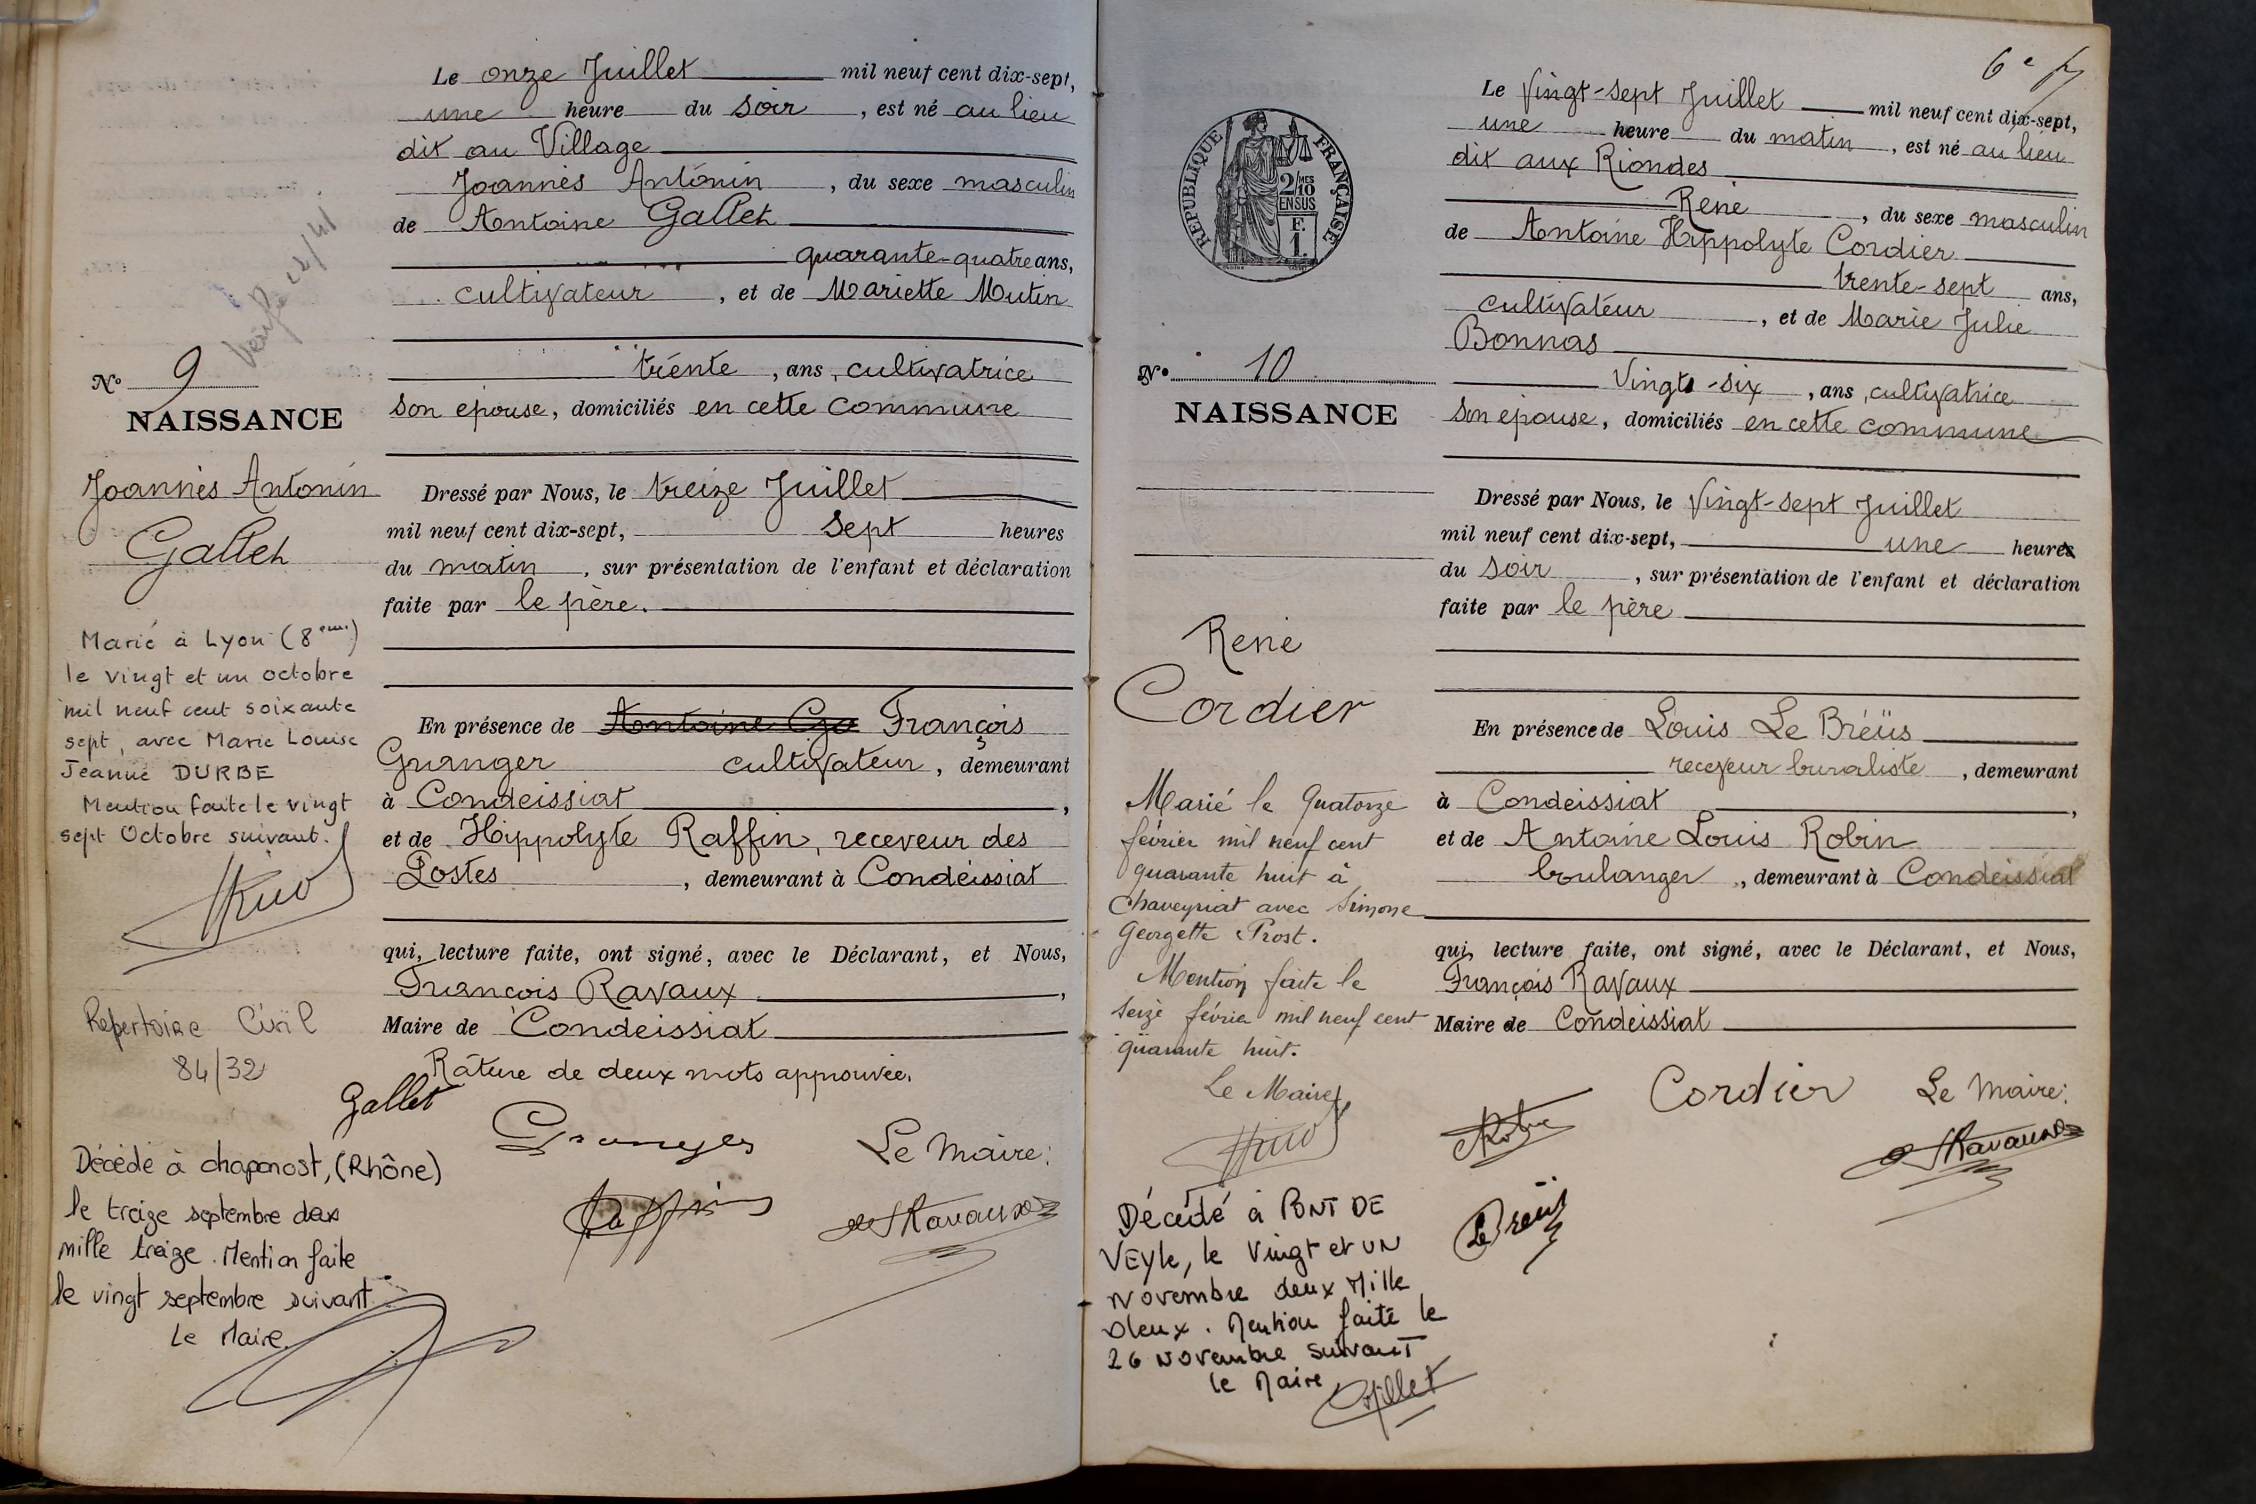 Le onze Juillet mil neuf cent dix-sept,
une heure du soir, est né au lieu
dit au Village
Joannès Antonin, du sexe masculin
de Antoine Gallet
quarante-quatre ans,
cultivateur, et de Mariette Mutin
trente, ans, cultivatrice
son épouse, domiciliés en cette commune
Dressé par Nous, le treize Juillet
mil neuf cent dix-sept, sept heures
du matin, sur présentation de l'enfant et déclaration
faite par le père.
En présence de Antoine Ga François
Granger cultivateur, demeurant
à Condeissiat,
et de Hippolyte Raffin, receveur des
Postes, demeurant à Condeissiat
qui, lecture faite, ont signé, avec le Déclarant, et Nous,
François Ravaux,
Maire de Condeissiat
Râture de deux mots approuvée.
Gallet
Granger
Le Maire:
Raffin
Ravaux
No 9
NAISSANCE
Joannès Antonin
Gallet
Marié à Lyon (8eme)
le vingt et un octobre
mil neuf cent soixante
sept, avec Marie Louise
Jeanne DURBE
Mention faite le vingt
sept Octobre suivant.
Répertoire Civil
84/32
Décédé à chaponost, (Rhône)
le treize septembre deux
mille treize. Mention faite
le vingt septembre suivant
Le Maire
6e
Le Vingt-sept Juillet mil neuf cent dix-sept,
une heure du matin, est né au lieu
dit aux Riondes
René, du sexe masculin
de Antoine Hippolyte Cordier
trente-sept ans,
cultivateur, et de Marie Julie
Bonnas
Vingt-six, ans, cultivatrice
son épouse, domiciliés en cette commune
Dressé par Nous, le Vingt-sept Juillet
mil neuf cent dix-sept, une heures
du soir, sur présentation de l'enfant et déclaration
faite par le père
En présence de Louis Le Bréüs
receveur buraliste, demeurant
à Condeissiat,
et de Antoine Louis Robin
boulanger, demeurant à Condeissiat
qui, lecture faite, ont signé, avec le Déclarant, et Nous,
François Ravaux
Maire de Condeissiat
Cordier
Le Maire:
Robin
Ravaux
Le Bréüs
REPUBLIQUE FRANÇAISE
2/MES
10
EN SUS
F.
1.
No 10
NAISSANCE
René
Cordier
Marié le Quatorze
février mil neuf cent
quarante huit à
Chaveyriat avec Simone
Georgette Prost.
Mention faite le
seize février mil neuf cent
quarante huit.
Le Maire
Décédé à PONT DE
VEYLE, le Vingt et UN
Novembre deux Mille
deux. Mention faite le
26 Novembre suivant
le Maire